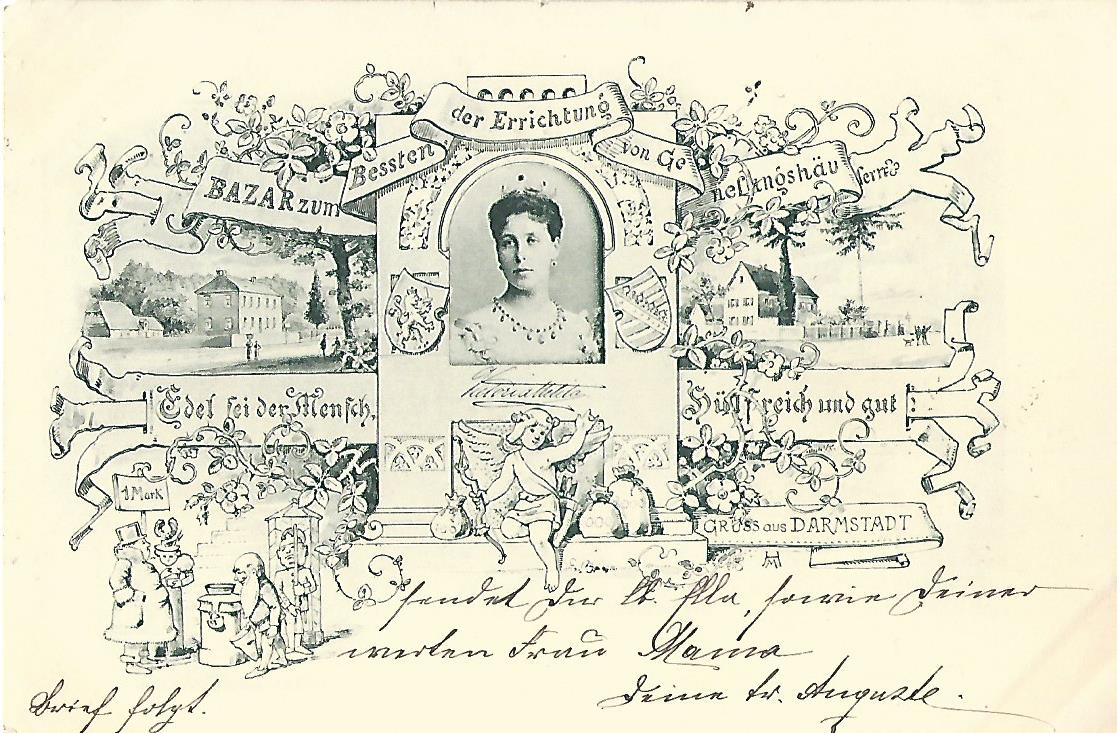 BAZAR zum Bessten der Errichtung von Ge nesungshäu sern
Edel sei der Mensch,
Hülfreich und gut
1 Mark
GRUSS aus DARMSTADT
sendet Dir lb. Ella, sowie Deiner
werten Frau Mama
Deine tr. Auguste.
Brief folgt.